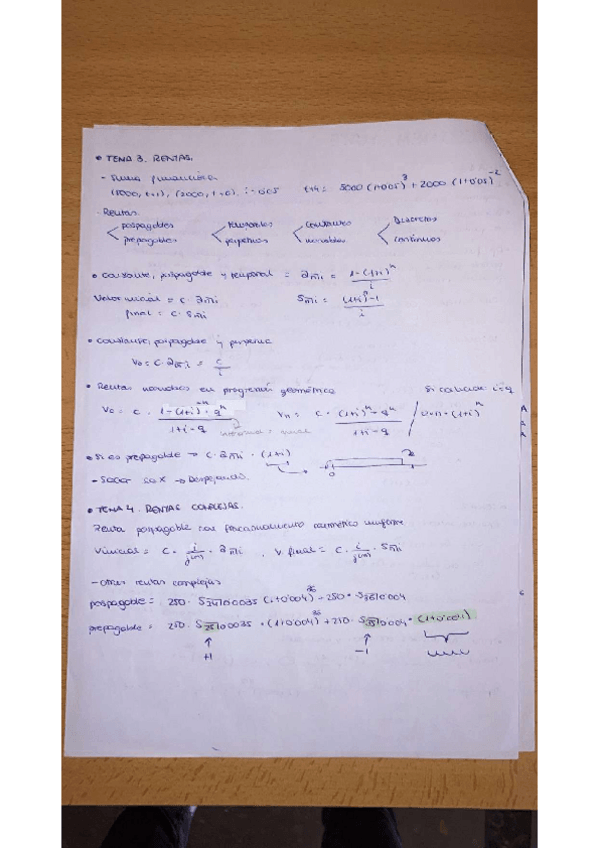 • TEMA 3. RENTAS.
- Suma financiera
(5000, t=1), (2000, t=6) i=0'05 t=4 = 5000 (1+0'05)^3 + 2000 (1+0'05)^-2
- Rentas
pospagables temporales constantes Discretas
prepagables perpetuas variables continuas
• constante, pospagable y temporal = a n̅|i = 1-(1+i)^-n / i
Valor inicial = c · a n̅|i S n̅|i = (1+i)^n - 1 / i
final = c · S n̅|i
• constante, pospagable y perpetua
V0 = c · a ∞̅|i = c / i
• Rentas variables en progresión geométrica si i=q
V0 = c · 1-(1+i)^-n · q^n / 1+i-q Vn = c · (1+i)^n - q^n / 1+i-q
• Si es prepagable → c · a n̅|i · (1+i)
- Sacar la X → Despejando.
0
• TEMA 4. RENTAS COMPLEJAS.
Renta pospagable con fraccionamiento aritmético uniforme
V inicial = c · i / j(m) · a n̅|i , V final = c · i / j(m) · S n̅|i
- Otras rentas complejas
pospagable = 250 · S 24|0'0035 (1+0'004)^36 + 250 · S 36|0'004
prepagable = 250 · S 25|0'0035 · (1+0'004)^36 + 250 · S 35|0'004 · (1+0'004)
+1 -1